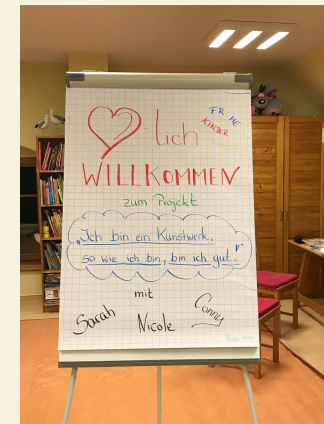 ♡-lich
KINDER
WILLKOMMEN
zum Projekt
"Ich bin ein Kunstwerk.
so wie ich bin, bin ich gut."
mit
Sarah
Nicole
Conny